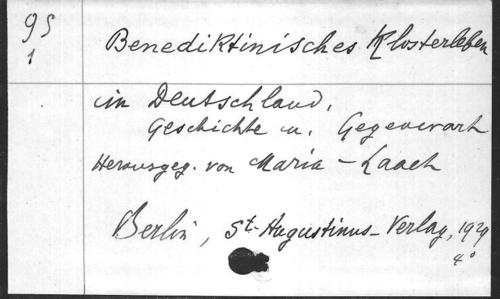 95
1
Benediktinisches Klosterleben
in Deutschland,
Geschichte u. Gegenwart
Herausgeg. von Maria-Laach
Berlin, St. Augustinus-Verlag, 1929
4°